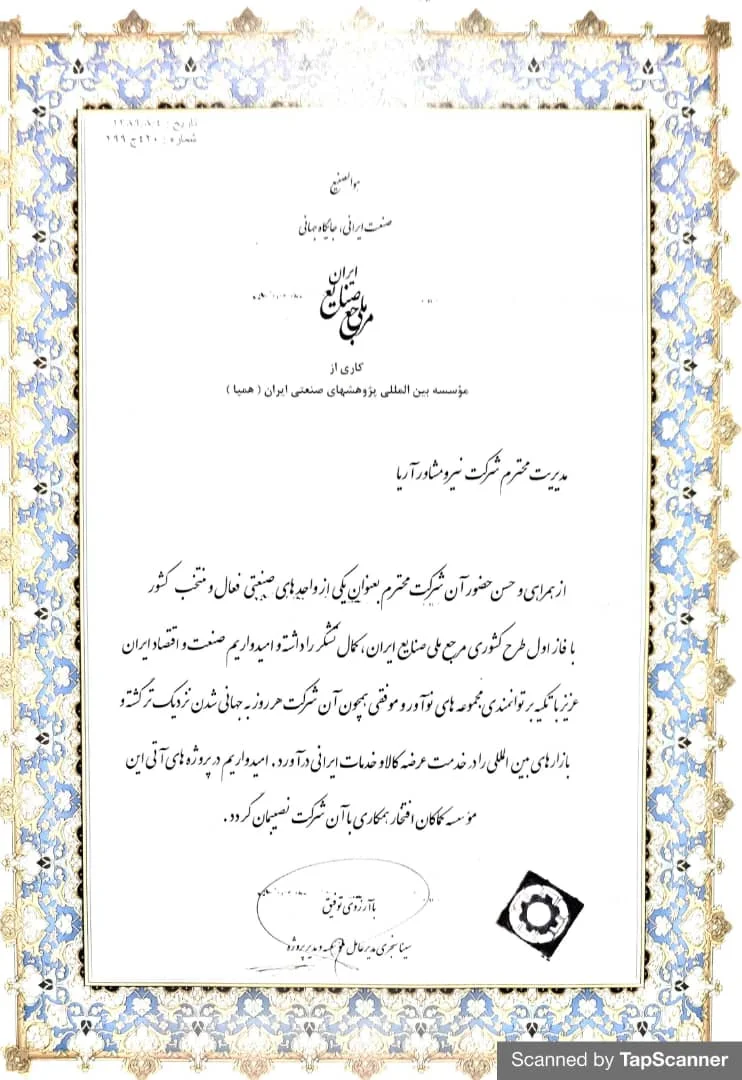 تاریخ : ۱۳۸۹،۸،۴
شماره : ۴۲۰ج ۲۹۹
هوالصنیع
صنعت ایرانی، جایگاه جهانی
مرجع ملی صنایع ایران
کاری از
مؤسسه بین المللی پژوهشهای صنعتی ایران ( همپا )
مدیریت محترم شرکت نیرو مشاور آریا
از همراهی و حسن حضور آن شرکت محترم بعنوان یکی از واحدهای صنعتی فعال و منتخب کشور
با فاز اول طرح کشوری مرجع ملی صنایع ایران، کمال تشکر را داشته و امیدواریم صنعت و اقتصاد ایران
عزیز با تکیه بر توانمندی مجموعه های نوآور و موفقی همچون آن شرکت هر روز به جهانی شدن نزدیک تر گشته و
بازارهای بین المللی را در خدمت عرضه کالا و خدمات ایرانی درآورد. امیدواریم در پروژه های آتی این
مؤسسه کماکان افتخار همکاری با آن شرکت نصیبمان گردد.
با آرزوی توفیق
مدیرعامل مؤسسه و مدیر پروژه
Scanned by TapScanner